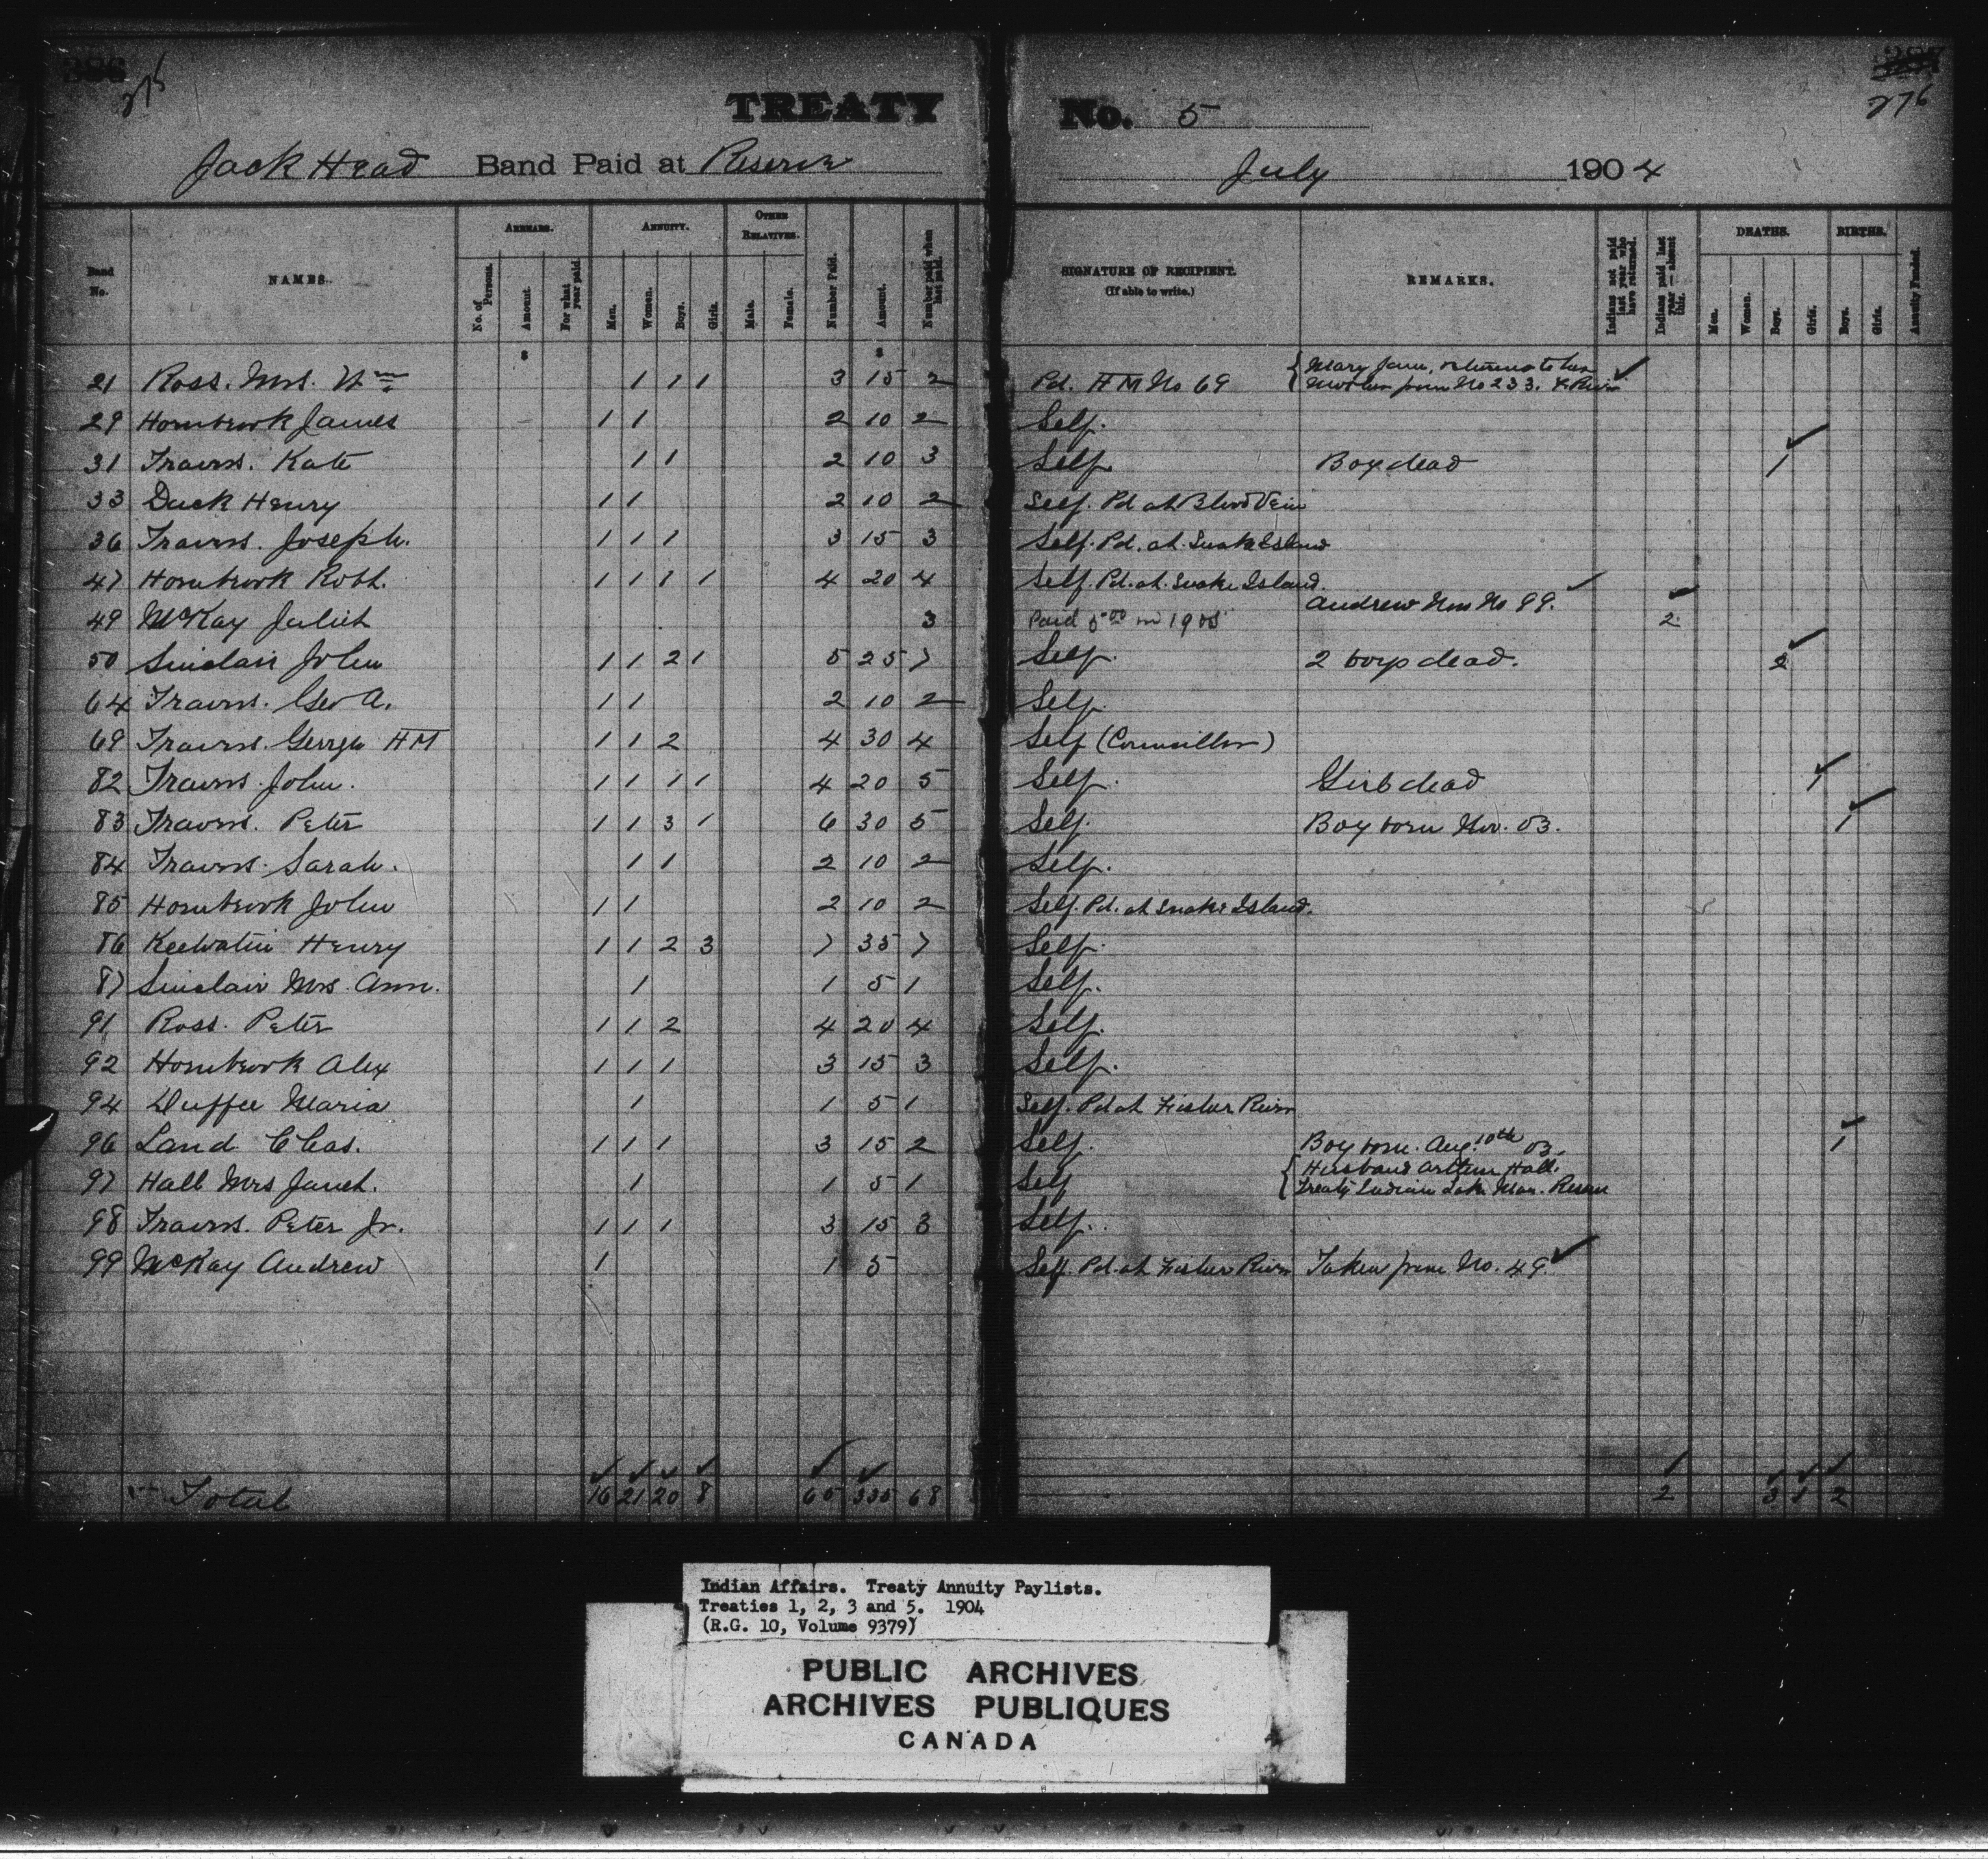 386 275
TREATY No. 5
387 276
Jack Head Band Paid at Reserve July 1904
Band No. NAMES. ARREARS. No. of Persons. Amount. For what year paid. ANNUITY. Men. Women. Boys. Girls. OTHER RELATIVES. Male. Female. Number Paid. Amount. Number paid when last paid. SIGNATURE OF RECIPIENT. (If able to write.) REMARKS. Indians not paid last year who have returned. Indians paid last year—absent this. DEATHS. Men. Women. Boys. Girls. BIRTHS. Boys. Girls. Annuity Funded.
21 Ross. Mrs. Wm 1 1 1 3 15 2 Pd. HM No 69 { Mary Jane, returns to her ✓
mother from No 233. F. River
29 Hornbrook James 1 1 2 10 2 Self.
31 Travers. Kate 1 1 2 10 3 Self Boy dead 1 ✓
33 Duck Henry 1 1 2 10 2 Self. Pd at Blood Vein
36 Travers. Joseph. 1 1 1 3 15 3 Self. Pd. at. Snake Island
47 Hornbrook Robt. 1 1 1 1 4 20 4 Self. Pd. at. Snake Island.
49 McKay Juliet 3 Paid 5 00 in 1905 Andrew Now No 99. ✓ 2 ✓
50 Sinclair John 1 1 2 1 5 25 7 Self. 2 boys dead. 2 ✓
64 Travers. Geo A. 1 1 2 10 2 Self.
69 Travers. George HM 1 1 2 4 30 4 Self (Councillor)
82 Travers. John. 1 1 1 1 4 20 5 Self. Girl dead 1 ✓
83 Travers. Peter 1 1 3 1 6 30 5 Self. Boy born Nov. 03. 1 ✓
84 Travers. Sarah. 1 1 2 10 2 Self.
85 Hornbrook John 1 1 2 10 2 Self. Pd. at Snake Island.
86 Keewatin Henry 1 1 2 3 7 35 7 Self.
87 Sinclair Mrs. Ann. 1 1 5 1 Self.
91 Ross. Peter 1 1 2 4 20 4 Self.
92 Hornbrook Alex 1 1 1 3 15 3 Self.
94 Duffee Maria 1 1 5 1 Self. Pd at Fisher River
96 Land Chas. 1 1 1 3 15 2 Self. Boy born. Aug. 10th 03. 1 ✓
97 Hall Mrs Janet. 1 1 5 1 Self { Husband Arthur Hall.
Treaty Indian Lake Man. Reserve
98 Travers. Peter Jr. 1 1 1 3 15 3 Self.
99 McKay Andrew 1 1 5 Self. Pd. at Fisher River Taken from No. 49. ✓
Total 16 21 20 8 65 335 68 2 3 1 2
Indian Affairs. Treaty Annuity Paylists.
Treaties 1, 2, 3 and 5. 1904
(R.G. 10, Volume 9379)
PUBLIC ARCHIVES
ARCHIVES PUBLIQUES
CANADA